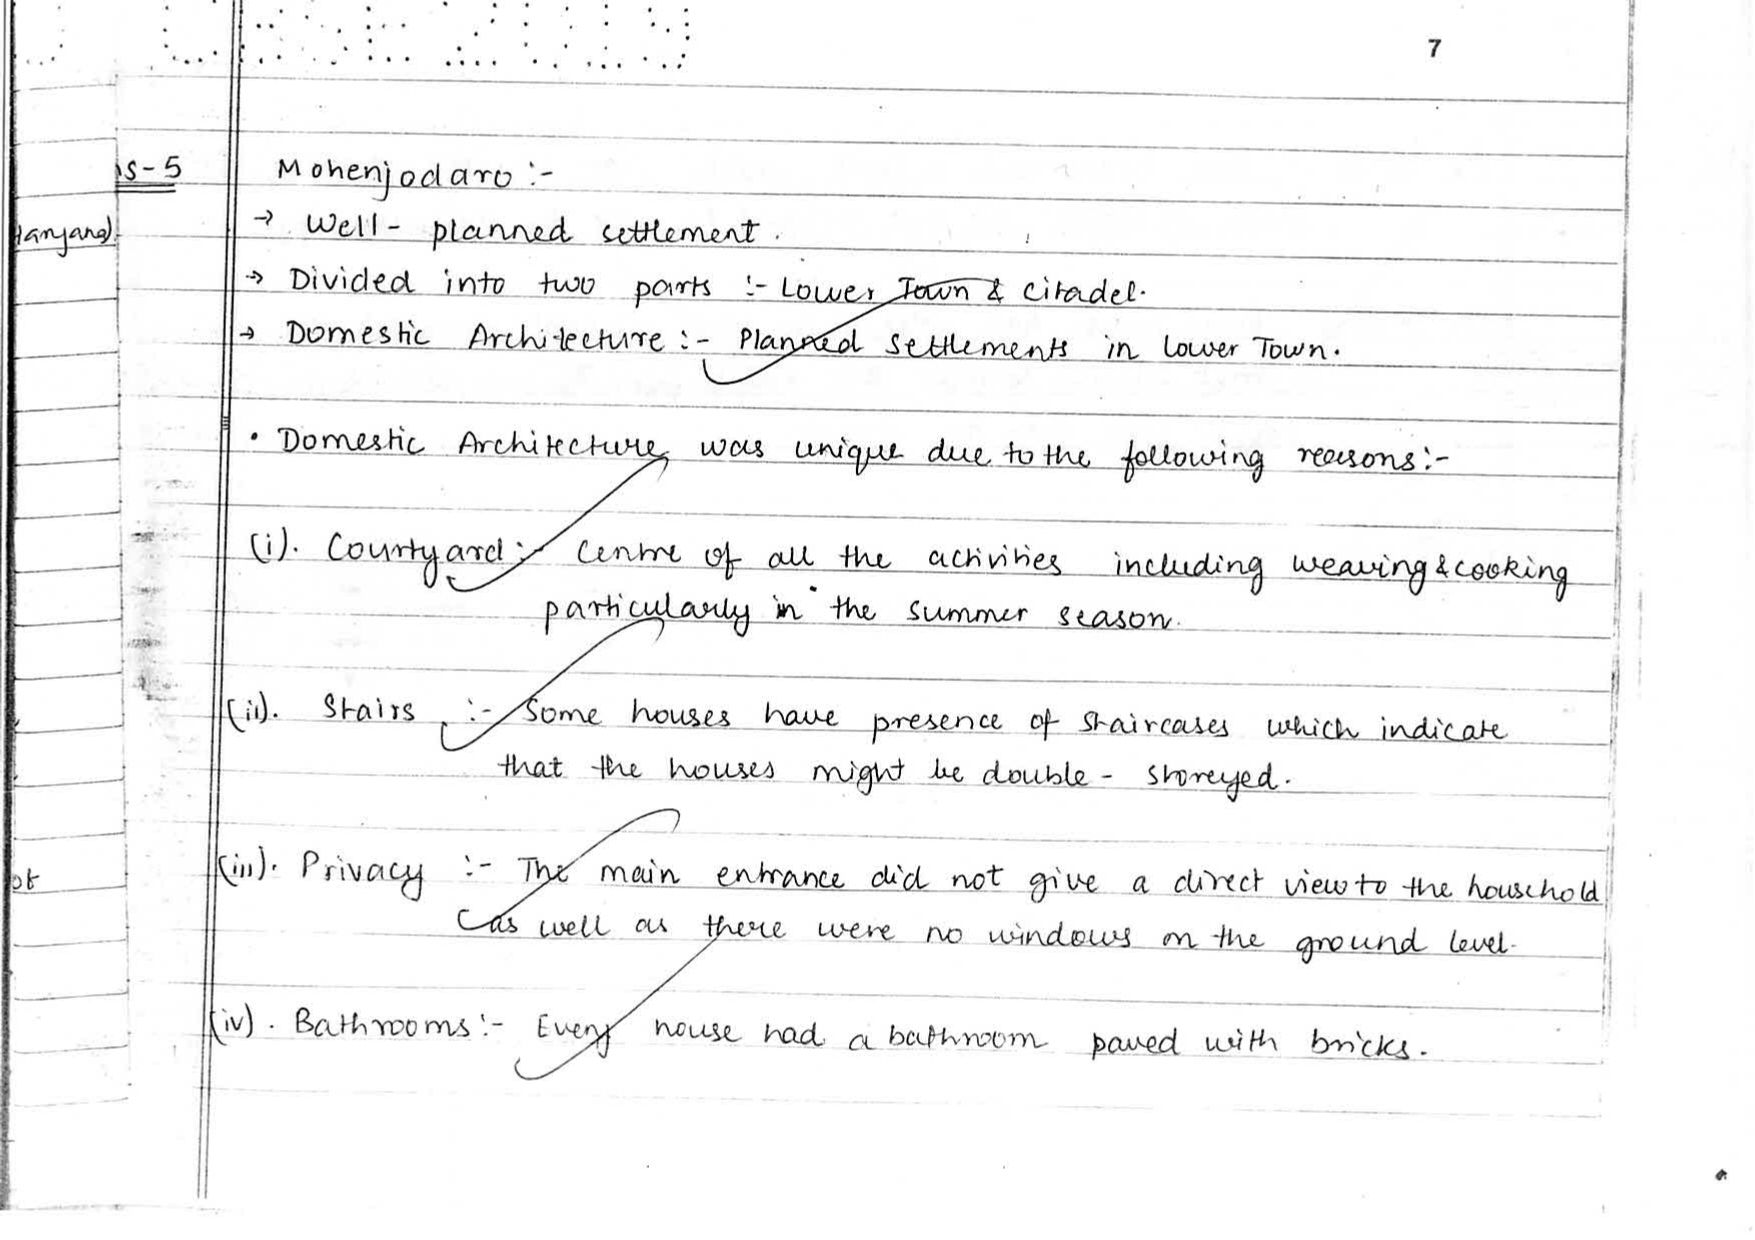 CBSE 2019
7
s-5
Mohenjodaro :-
→ Well - planned settlement.
→ Divided into two parts :- Lower Town & Citadel.
→ Domestic Architecture :- Planned settlements in Lower Town.
• Domestic Architecture was unique due to the following reasons :-
(i). Courtyard :- Centre of all the activities including weaving & cooking
particularly in the summer season.
(ii). Stairs :- Some houses have presence of staircases which indicate
that the houses might be double - storeyed.
(iii). Privacy :- The main entrance did not give a direct view to the household
as well as there were no windows on the ground level.
(iv). Bathrooms :- Every house had a bathroom paved with bricks.